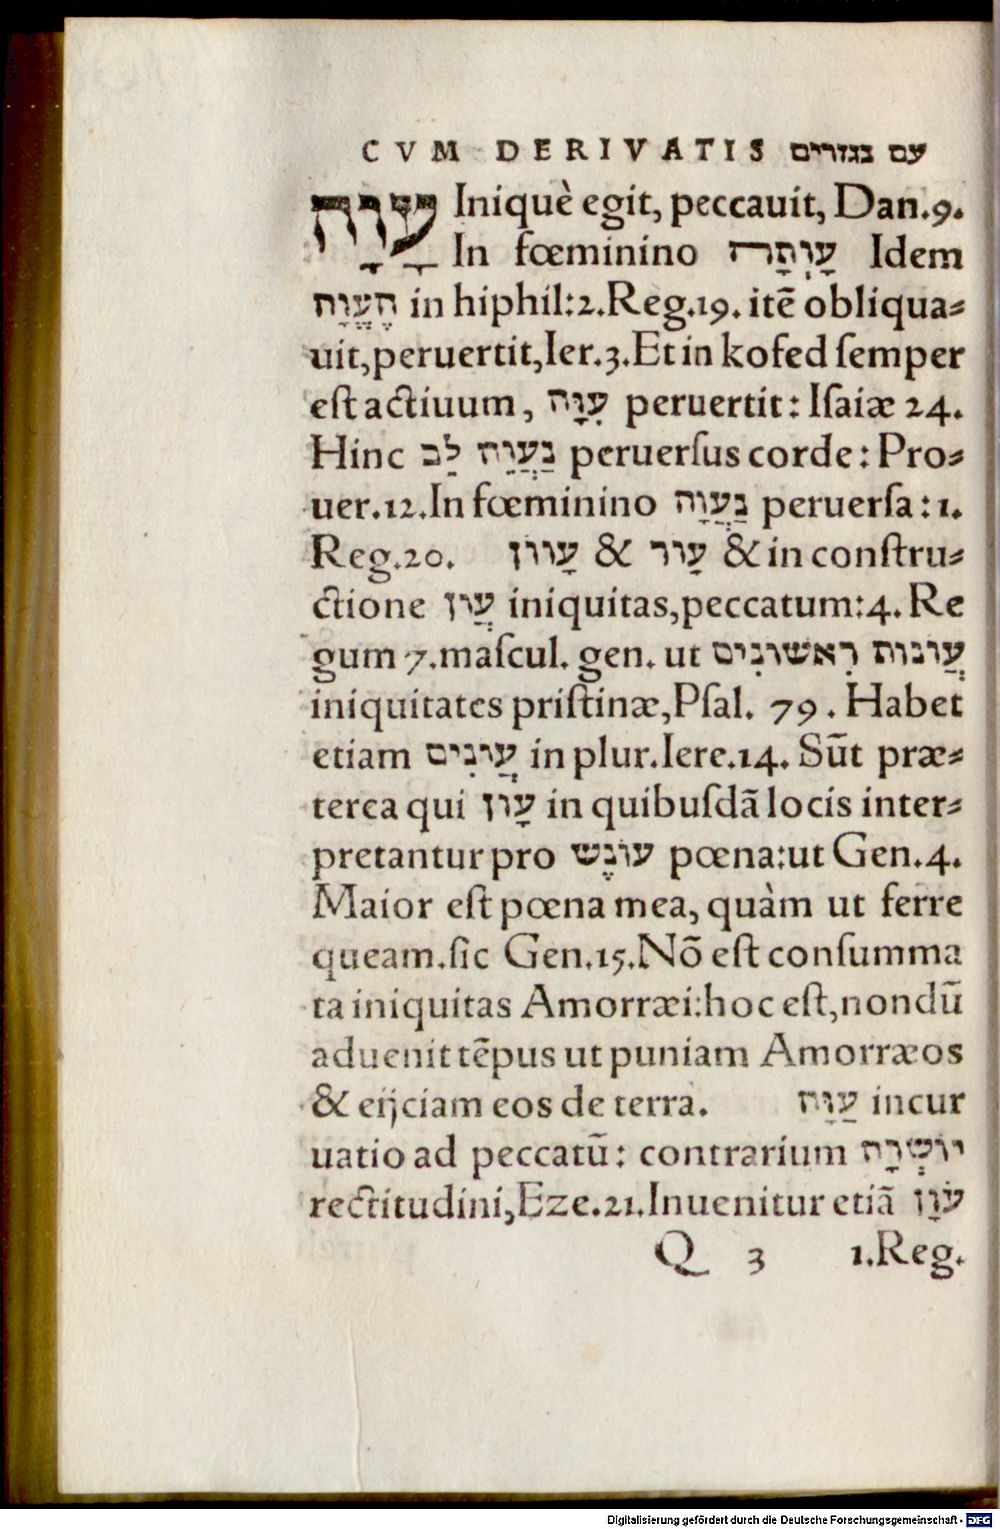 CVM DERIVATIS עם נגזרים
עָוָה Iniquè egit, peccauit, Dan.9.
In fœminino עָוְתָה Idem
הֶעֱוָה in hiphil:2.Reg.19. itē obliqua⸗
uit,peruertit,Ier.3.Et in kofed ſemper
eſt actiuum, עִוָּה peruertit: Iſaiæ 24.
Hinc נַעֲוֵה לֵב peruerſus corde: Pro⸗
uer.12.In fœminino נַעֲוָה peruerſa: 1.
Reg.20. עָווֹן & עָוֹר & in conſtru⸗
ctione עֲוֹן iniquitas,peccatum:4. Re
gum 7.maſcul. gen. ut עֲוֹנוֹת רִאשׁוֹנִים
iniquitates priſtinæ,Pſal. 79. Habet
etiam עֲוֹנִים in plur.Iere.14. Sūt præ⸗
terea qui עָוֹן in quibuſdā locis inter⸗
pretantur pro עוֹנֶשׁ pœna:ut Gen.4.
Maior eſt pœna mea, quàm ut ferre
queam.ſic Gen.15.Nō eſt conſumma
ta iniquitas Amorræi:hoc eſt,nondū
aduenit tēpus ut puniam Amorræos
& eijciam eos de terra. עַוָּה incur
uatio ad peccatū: contrarium יוֹשְׁרָה
rectitudini,Eze.21.Inuenitur etiā עֹוָן
Q 3 1.Reg.
Digitalisierung gefördert durch die Deutsche Forschungsgemeinschaft - DFG